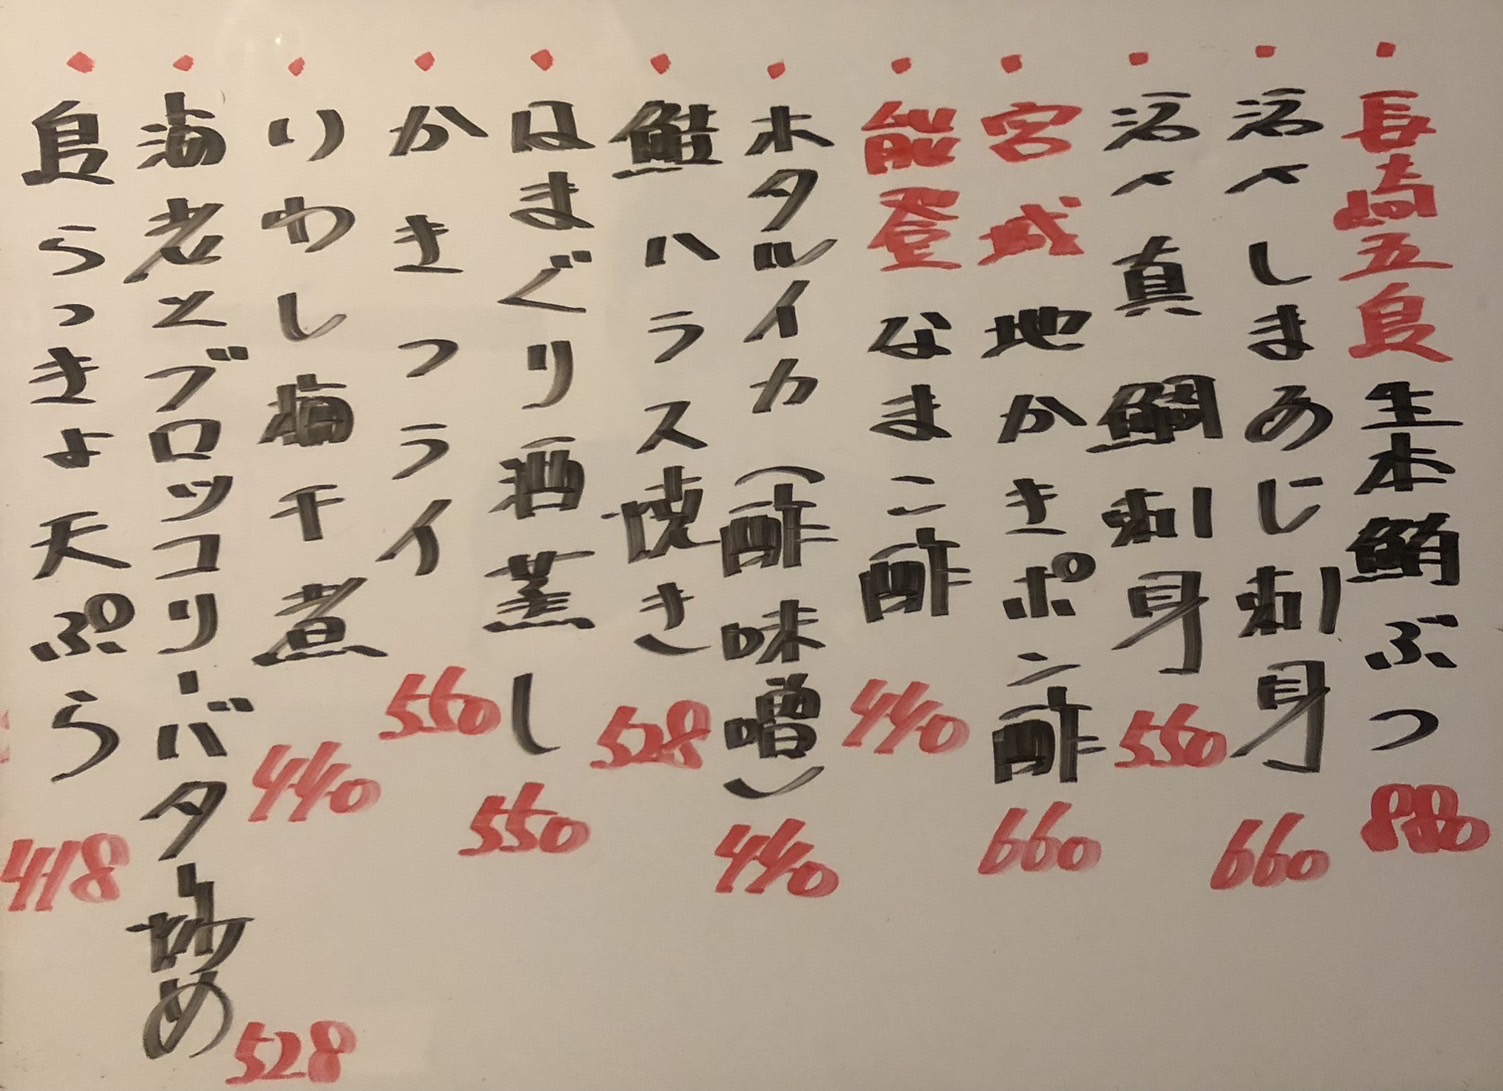 ・長崎五島生本鮪ぶつ 880
・活〆しまあじ刺身 660
・活〆真鯛刺身 550
・宮城地かきポン酢 660
・能登なまこ酢 440
・ホタルイカ(酢味噌) 440
・鮭ハラス焼き 528
・はまぐり酒蒸し 550
・かきフライ 550
・いわし梅干煮 440
・海老とブロッコリーバター炒め 528
・島らっきょ天ぷら 418